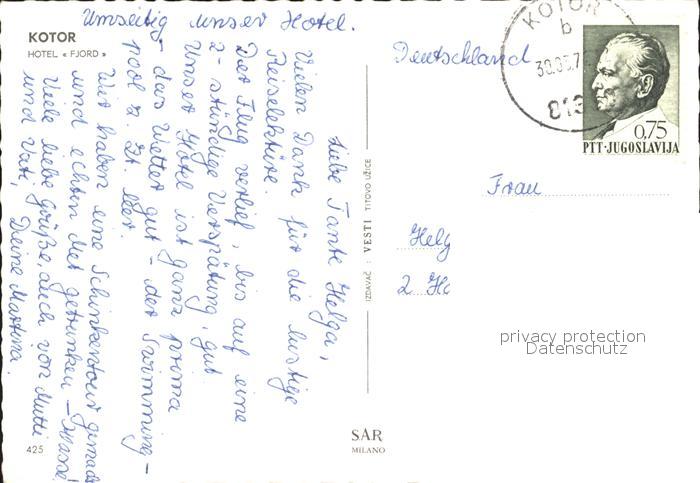 Umseitig unser Hotel.
KOTOR
HOTEL « FJORD »
Liebe Tante Helga,
Vielen Dank für die lustige
Reiselektüre.
Der Flug verlief, bis auf eine
2-stündige Verspätung, gut.
Unser Hotel ist ganz prima
- das Wetter gut - der Swimming-
pool z. Zt. leer.
Wir haben eine Schinkentour gemacht
und echten Met getrunken - Klasse!
Viele liebe Grüße, auch von Mutti
und Vati,
Deine Martina.
425
IZDAVAČ : VESTI TITOVO UŽICE
SAR
MILANO
KOTOR
b
0,75
PTT·JUGOSLAVIJA
Deutschland
Frau
Helg
2 H
privacy protection
Datenschutz